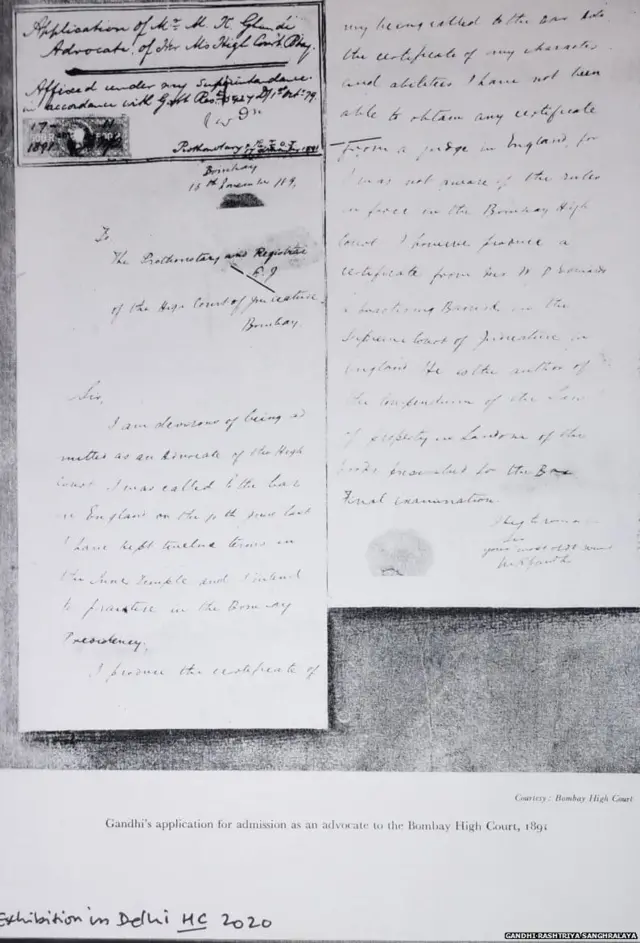 Application of Mr M. K. Ghandi
Advocate, of Her Ms High Court Bbay.
Affixed under my Superintendance
in accordance with
17
1891
Prothonotary
Bombay
To
The Prothonotary and Registrar
of the High Court of Judicature
Bombay.
Sir,
I am desirous of being ad
mitted as an Advocate of the High
Court. I was called to the bar
in England on the
I have kept twelve terms in
the Inner Temple and I intend
to practise in the Bombay
Presidency.
I produce the certificate of
my being called to the bar. As to
the certificate of my character
and abilities I have not been
able to obtain any certificate
from a judge in England, for
I was not aware of the rules
in force in the Bombay High
Court. I however produce a
certificate from Mr W D Edwards
a practising Barrister in the
Supreme Court of Judicature in
England. He is the author of
the Compendium of the Law
of property in Land one of the
books prescribed for the Bar
Final examination.
I beg to remain
Sir
your most obdt servant
M K Gandhi
Courtesy: Bombay High Court
Gandhi's application for admission as an advocate to the Bombay High Court, 1891
Exhibition in Delhi HC 2020
GANDHI RASHTRIYA SANGHRALAYA